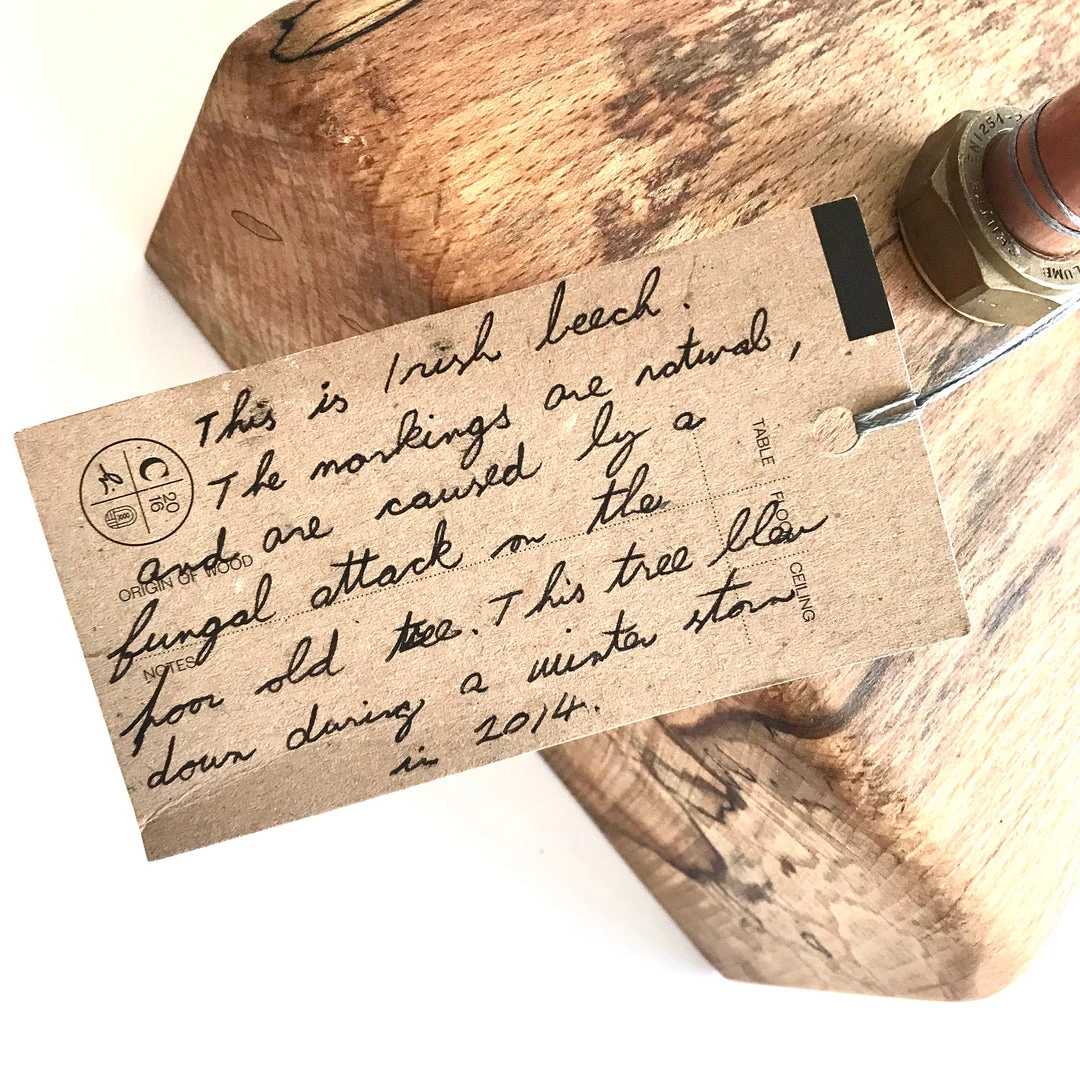 This is Irish beech.
The markings are natural,
and are caused by a
fungal attack on the
poor old tree. This tree blew
down during a winter storm
in 2014.
C
20
16
ORIGIN OF WOOD
NOTES
TABLE
FLOOR
CEILING
EN1254-
LUME